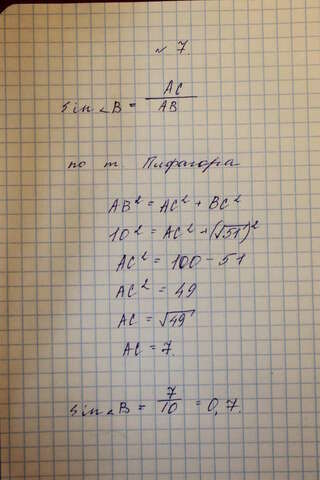 № 7.
sin∠B = AC/AB
по т. Пифагора
AB² = AC² + BC²
10² = AC² + (√51)²
AC² = 100 - 51
AC² = 49
AC = √49
AC = 7.
sin∠B = 7/10 = 0,7.